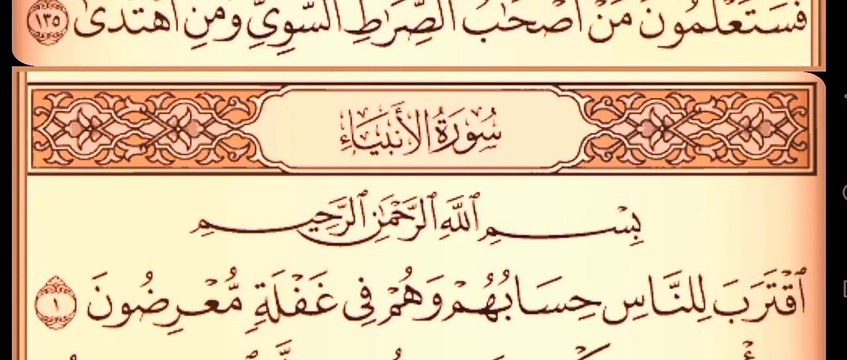 فَسَتَعْلَمُونَ مَنْ أَصْحَٰبُ ٱلصِّرَٰطِ ٱلسَّوِىِّ وَمَنِ ٱهْتَدَىٰ ١٣٥
سُورَةُ الأَنبِيَاءِ
بِسْمِ ٱللَّهِ ٱلرَّحْمَٰنِ ٱلرَّحِيمِ
ٱقْتَرَبَ لِلنَّاسِ حِسَابُهُمْ وَهُمْ فِى غَفْلَةٍ مُّعْرِضُونَ ١